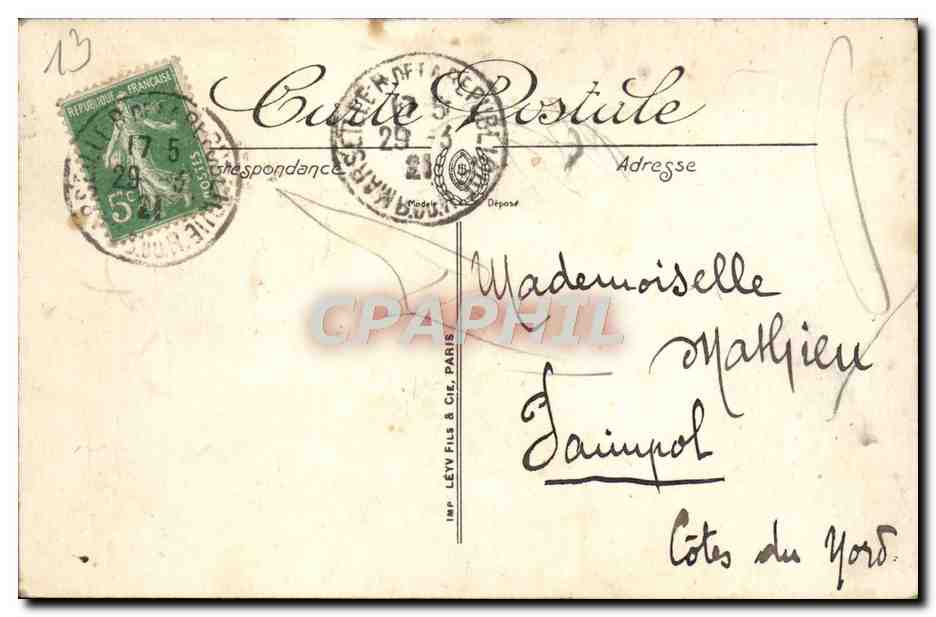 13
RÉPUBLIQUE FRANÇAISE
POSTES
5c
17 5
29 - 5
21
Carte Postale
29 5
21
Correspondance
Adresse
Modèle Déposé
Mademoiselle
Mathieu
Paimpol
Côtes du Nord.
IMP LÉVY FILS & CIE, PARIS
CPAPHIL